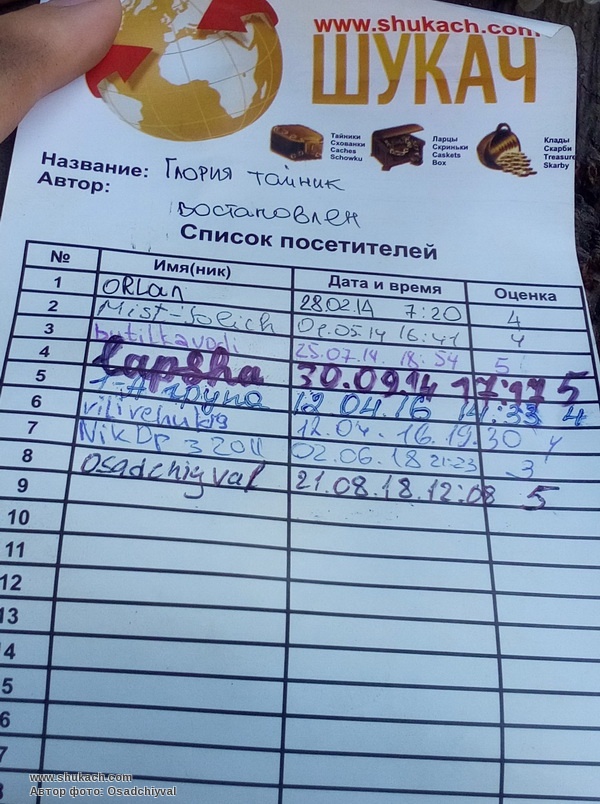 www.shukach.com
ШУКАЧ
Тайники
Схованки
Caches
Schowku
Ларцы
Скриньки
Caskets
Box
Клады
Скарби
Treasure
Skarby
Название: Глория тайник
Автор: востановлен
Список посетителей
№ Имя(ник) Дата и время Оценка
1 ORLan 28.02.14 7:20 4
2 Mist-Solich 01.05.14 16:41 4
3 butilkavodi 25.07.14. 18:54 5
4 Lapsha 30.09.14 17:17 5
5 1-А група 12.04.16 14:33 4
6 12.04.16.19.30 4
7 NikDP 3 2011 02.06.18 21:23 3
8 Osadchiyval 21.08.18.12:08 5
9
10
11
12
13
4
5
6
7
www.shukach.com
Автор фото: Osadchiyval